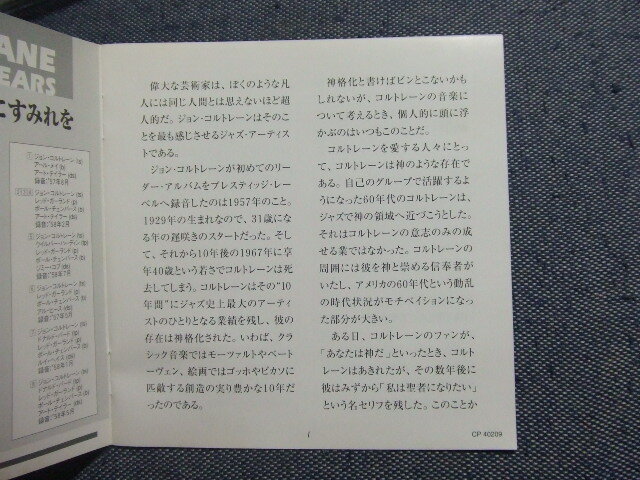 ANE
EARS
こすみれを
ジョン・コルトレーン (ts)
アール・メイ (b)
アート・テイラー (ds)
録音:'57年8月
ジョン・コルトレーン (ts)
レッド・ガーランド (p)
ポール・チェンバース (b)
アート・テイラー (ds)
録音:'58年2月
ジョン・コルトレーン (ts)
ウイルバー・ハーデン
レッド・ガーランド (p)
ポール・チェンバース (b)
ジミー・コブ (ds)
録音:'58年7月
レッド・ガーランド (p)
ポール・チェンバース (b)
偉大な芸術家は、ぼくのような凡
人には同じ人間とは思えないほど超
人的だ。ジョン・コルトレーンはそのこ
とを最も感じさせるジャズ・アーティス
トである。
ジョン・コルトレーンが初めてのリー
ダー・アルバムをプレスティッジ・レー
ベルへ録音したのは1957年のこと。
1929年の生まれなので、31歳にな
る年の遅咲きのスタートだった。そし
て、それから10年後の1967年に享
年40歳という若さでコルトレーンは死
去してしまう。コルトレーンはその“10
年間”にジャズ史上最大のアーティ
ストのひとりとなる業績を残し、彼の
存在は神格化された。いわば、クラ
シック音楽ではモーツァルトやベート
ーヴェン、絵画ではゴッホやピカソに
匹敵する創造の実り豊かな10年だ
ったのである。
神格化と書けばピンとこないかも
しれないが、コルトレーンの音楽に
ついて考えるとき、個人的に頭に浮
かぶのはいつもこのことだ。
コルトレーンを愛する人々にとっ
て、コルトレーンは神のような存在で
ある。自己のグループで活躍するよ
うになった60年代のコルトレーンは、
ジャズで神の領域へ近づこうとした。
それはコルトレーンの意志のみの成
せる業ではなかった。コルトレーンの
周囲には彼を神と崇める信奉者が
いたし、アメリカの60年代という動乱
の時代状況がモチベイションになっ
た部分が大きい。
ある日、コルトレーンのファンが、
「あなたは神だ」といったとき、コルト
レーンはあきれたが、その数年後に
彼はみずから「私は聖者になりたい」
という名セリフを残した。このことか
CP 40209